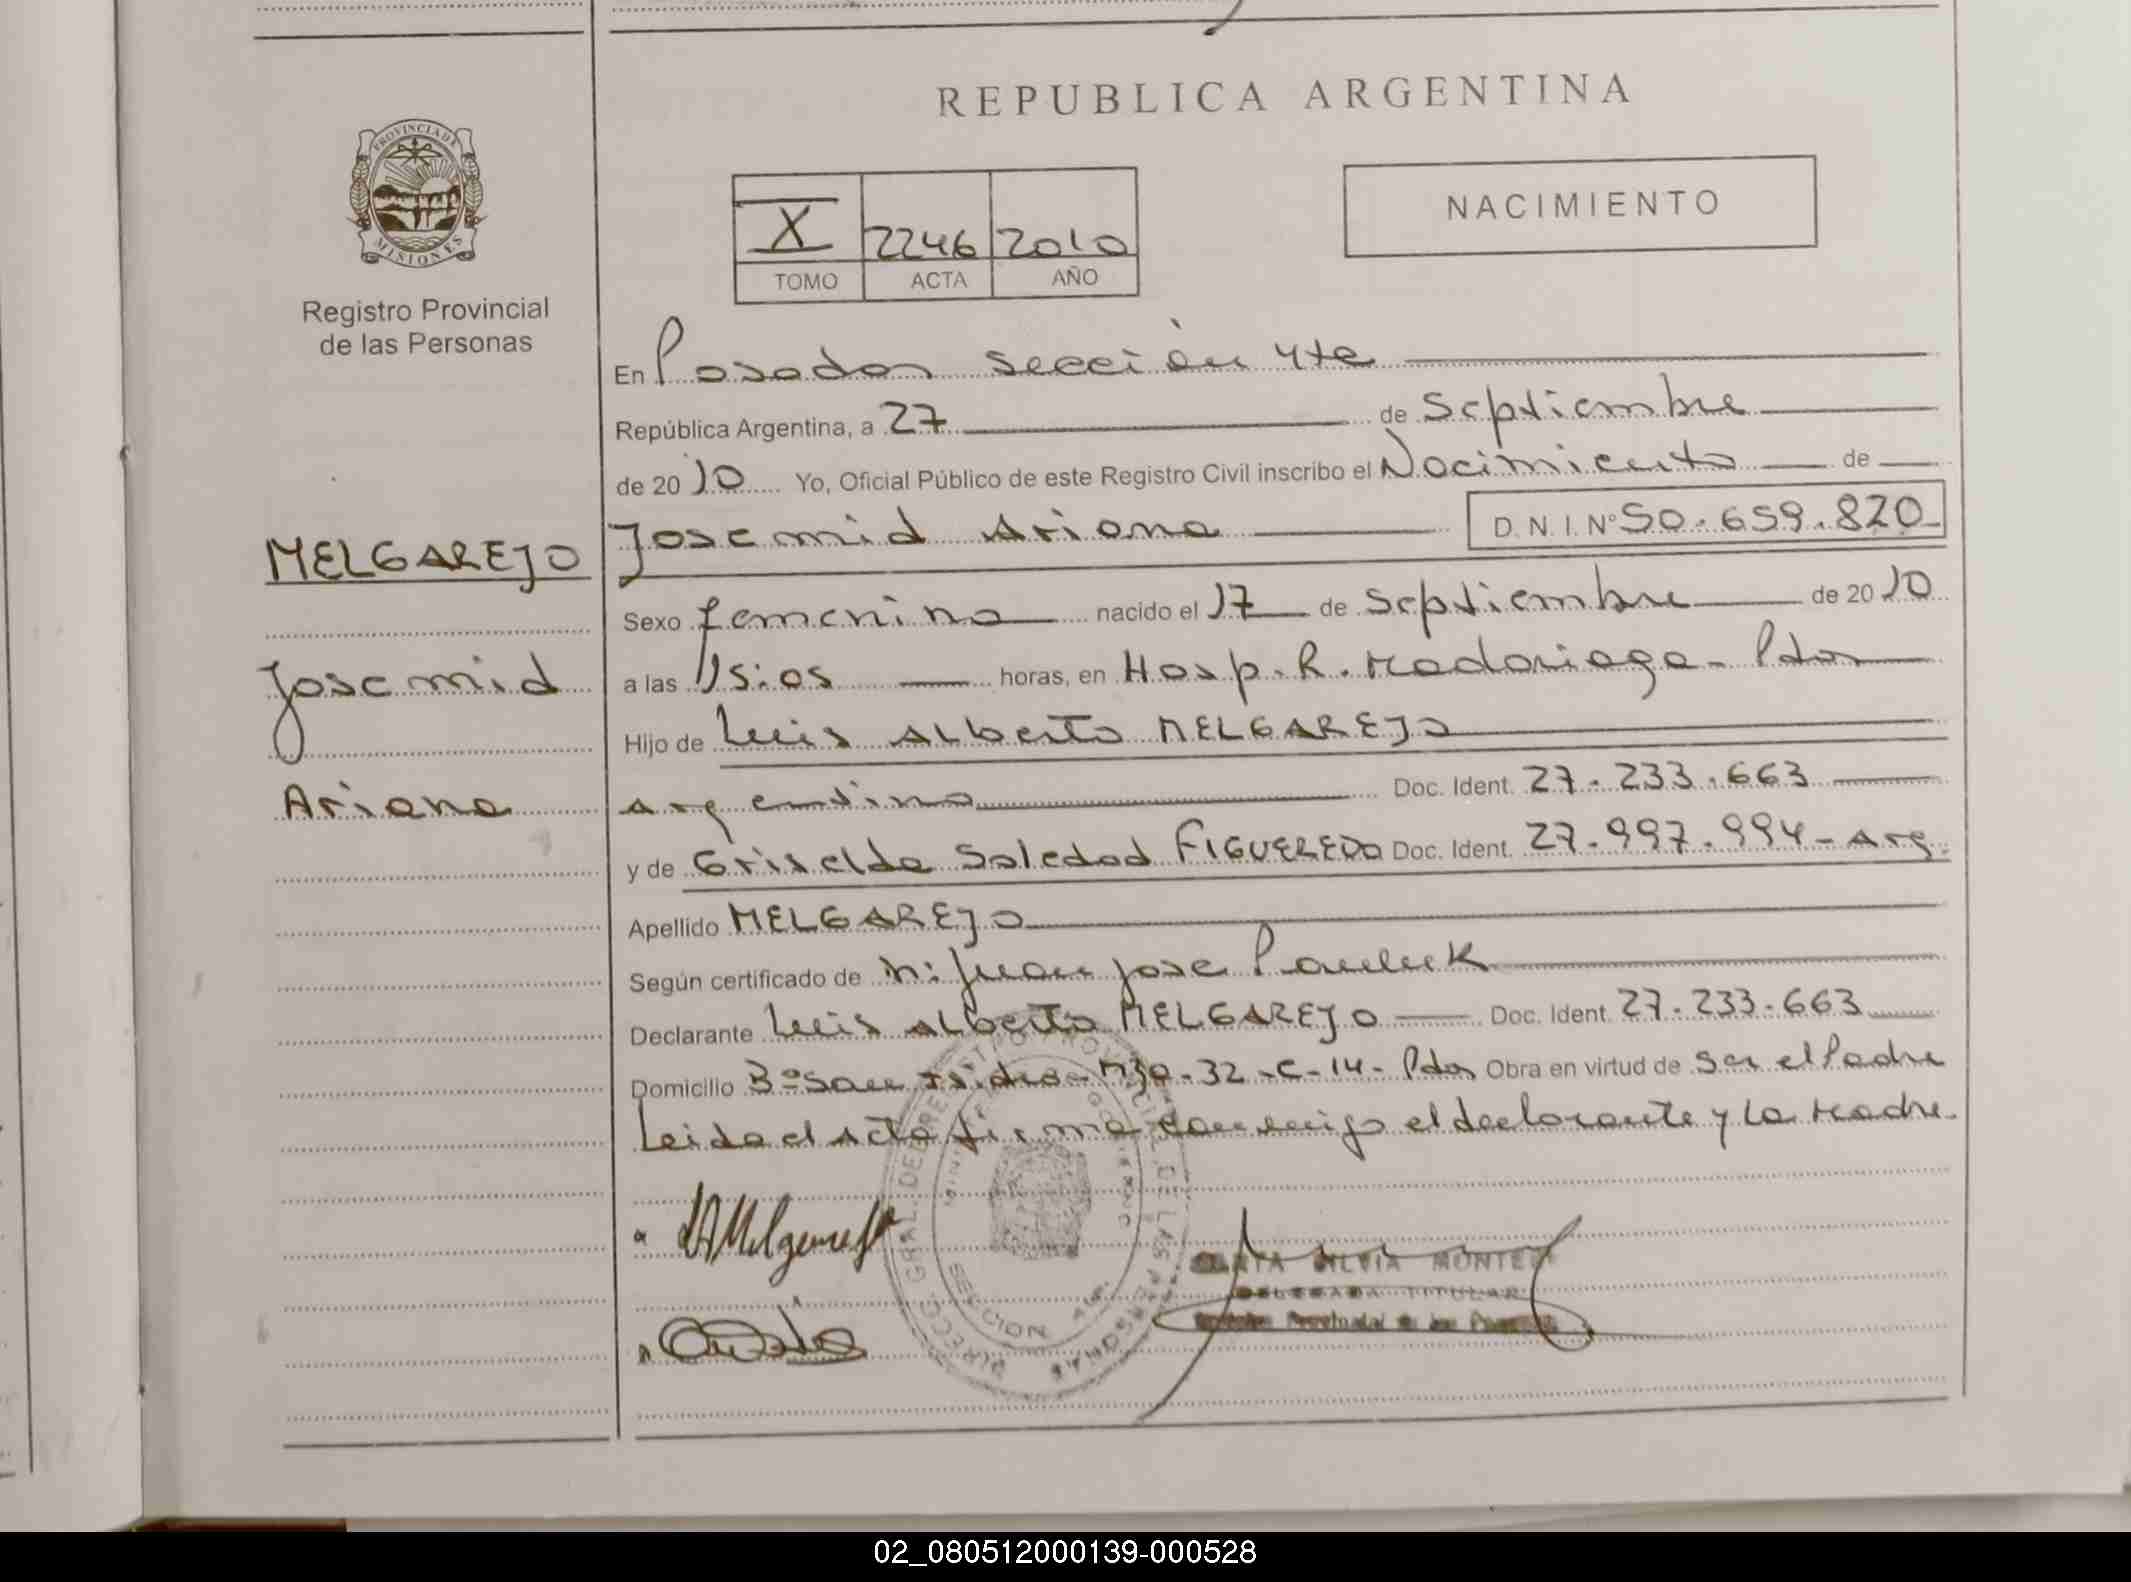 REPUBLICA ARGENTINA
PROVINCIA DE
MISIONES
Registro Provincial
de las Personas
NACIMIENTO
X 2246 2010
TOMO ACTA AÑO
En Posadas sección 4ta
República Argentina, a 27 de Septiembre
de 2010 Yo, Oficial Público de este Registro Civil inscribo el Nacimiento de
Josemid Ariana D.N.I. Nº 50.659.820
MELGAREJO
Josemid
Ariana
Sexo femenino nacido el 17 de Septiembre de 2010
a las 15:05 horas, en Hosp. R. Madariaga - Pdas
Hijo de Luis Alberto MELGAREJO
argentino Doc. Ident. 27.233.663
y de Griselda Soledad FIGUEREDO Doc. Ident. 27.997.994 - Arg.
Apellido MELGAREJO
Según certificado de Juan Jose
Declarante Luis Alberto MELGAREJO Doc. Ident. 27.233.663
Domicilio Bº San Isidro - Mza. 32 - C - 14 - Pdas Obra en virtud de ser el Padre
Leida el acta firma conmigo el declarante y la Madre.
DIRECC. GRAL. DEL REGISTRO PROVINCIAL DE LAS PERSONAS
SECCION 4ta.
SILVIA
DELEGADA TITULAR
Provincial de las
02_080512000139-000528